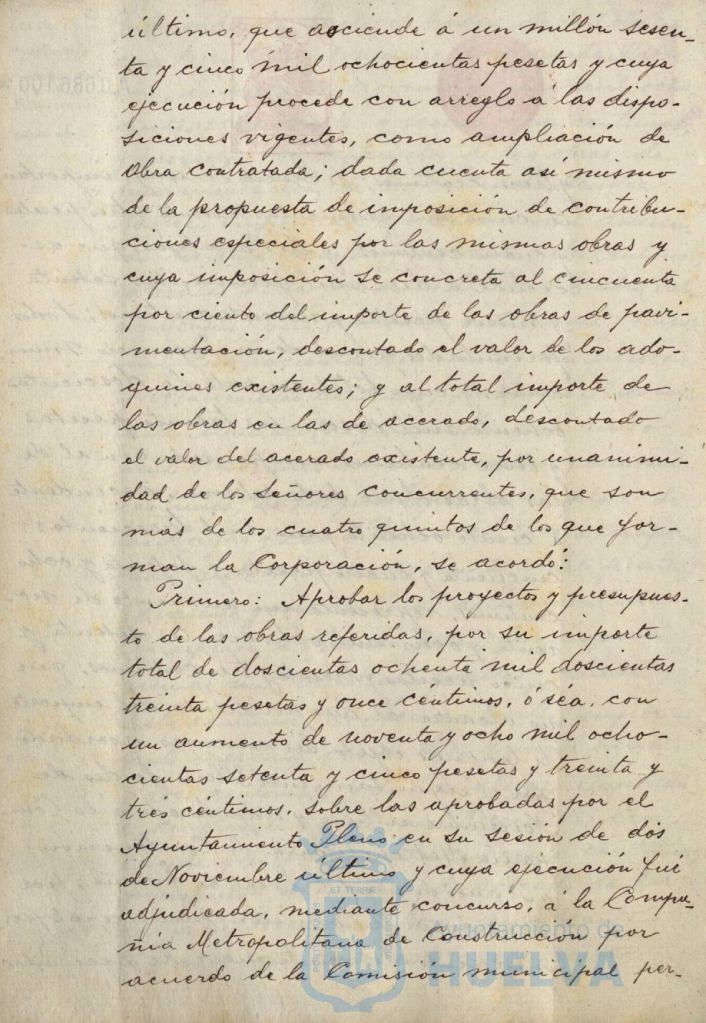 último, que asciende á un millón sesen-
ta y cinco mil ochocientas pesetas y cuya
ejecución procede con arreglo á las dispo-
siciones vigentes, como ampliación de
obra contratada; dada cuenta así mismo
de la propuesta de imposición de contribu-
ciones especiales por las mismas obras y
cuya imposición se concreta al cincuenta
por ciento del importe de las obras de pavi-
mentación, descontado el valor de los ado-
quines existentes; y al total importe de
las obras en las de acerado, descontado
el valor del acerado existente, por unanimi-
dad de los Señores concurrentes, que son
más de los cuatro quintos de los que for-
man la Corporación, se acordó:
Primero: Aprobar los proyectos y presupues-
to de las obras referidas, por su importe
total de doscientas ochenta mil doscientas
treinta pesetas y once céntimos, ó séa, con
un aumento de noventa y ocho mil ocho-
cientas setenta y cinco pesetas y treinta y
tres céntimos, sobre las aprobadas por el
Ayuntamiento Pleno en su sesión de dós
de Noviembre último y cuya ejecución fué
adjudicada, mediante concurso, á la Compa-
ñia Metropolitana de Construcción por
acuerdo de la Comisión municipal per-
Ayuntamiento de
HUELVA